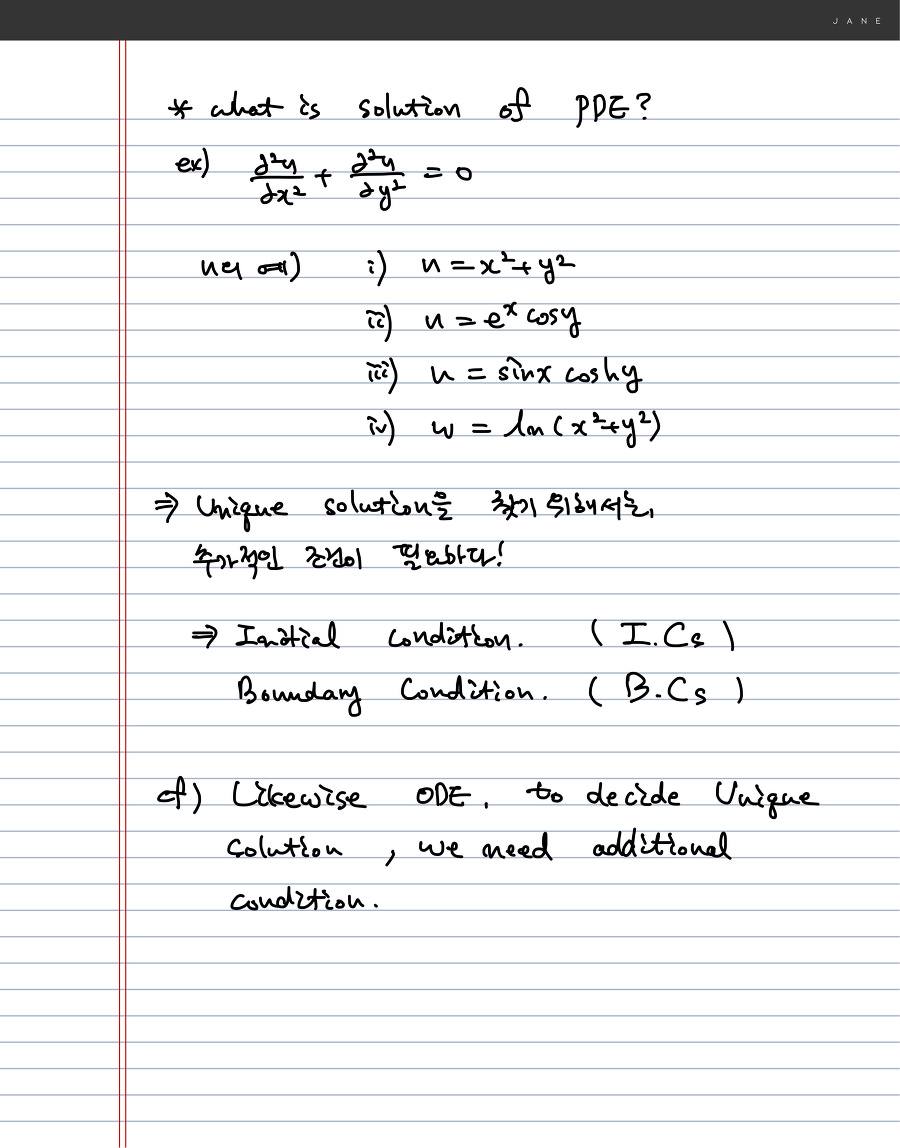 JANE
* what is solution of PDE?
ex) ∂²u/∂x² + ∂²u/∂y² = 0
u의 예) i) u = x²+y²
ii) u = eˣ cosy
iii) u = sinx coshy
iv) w = ln(x²+y²)
⇒ Unique solution을 찾기 위해서는,
추가적인 조건이 필요하다!
⇒ Initial condition. (I.Cs)
Boundary Condition. (B.Cs)
cf) Likewise ODE, to decide Unique
solution, we need additional
condition.